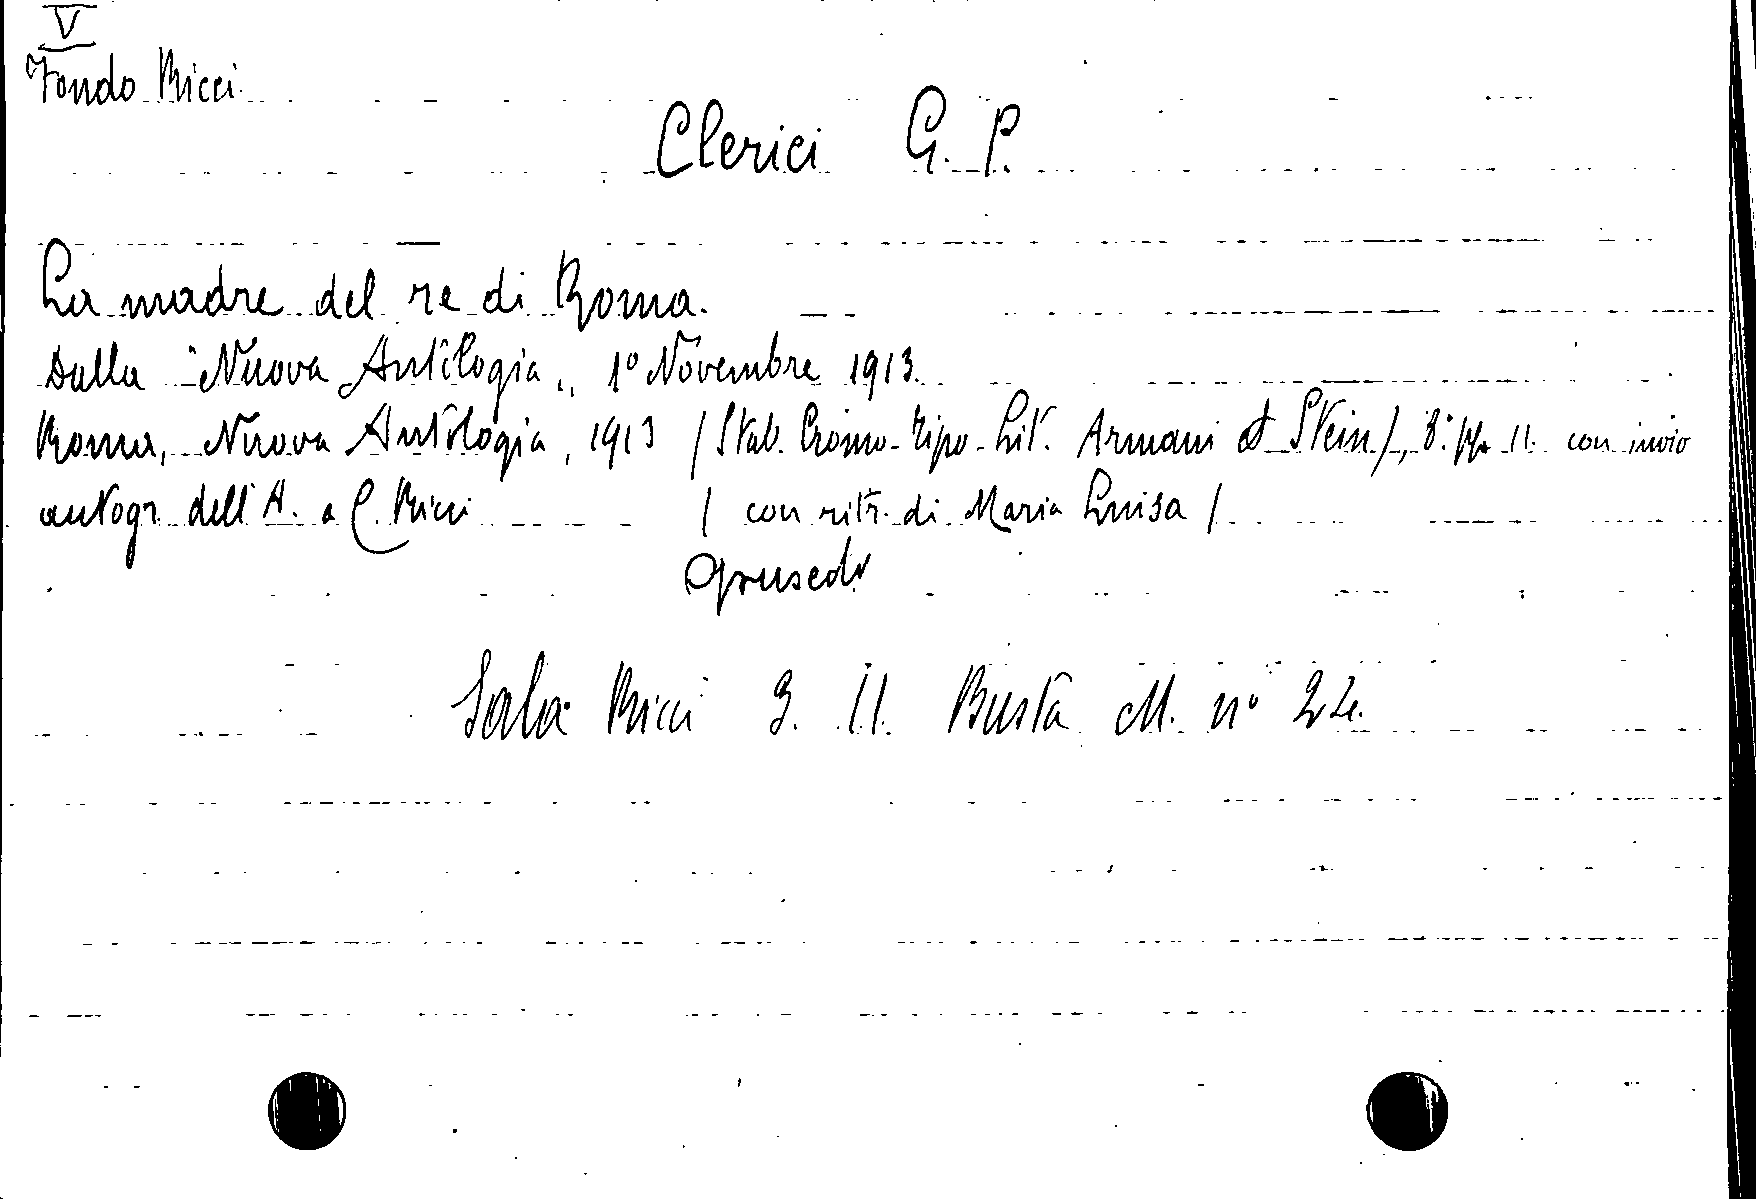 V
Fondo Ricci
Clerici G. P.
La madre del re di Roma.
Dalla "Nuova Antologia„ 1º Novembre 1913.
Roma, Nuova Antologia, 1913 / Stab. Cromo-Tipo-Lit. Armani & Stein /, 8º pp. 11. con invio
autogr. dell'A. a C. Ricci / con ritr. di Maria Luisa /
Opuscolo
Sala Ricci 3. 11. Busta M. nº 22.